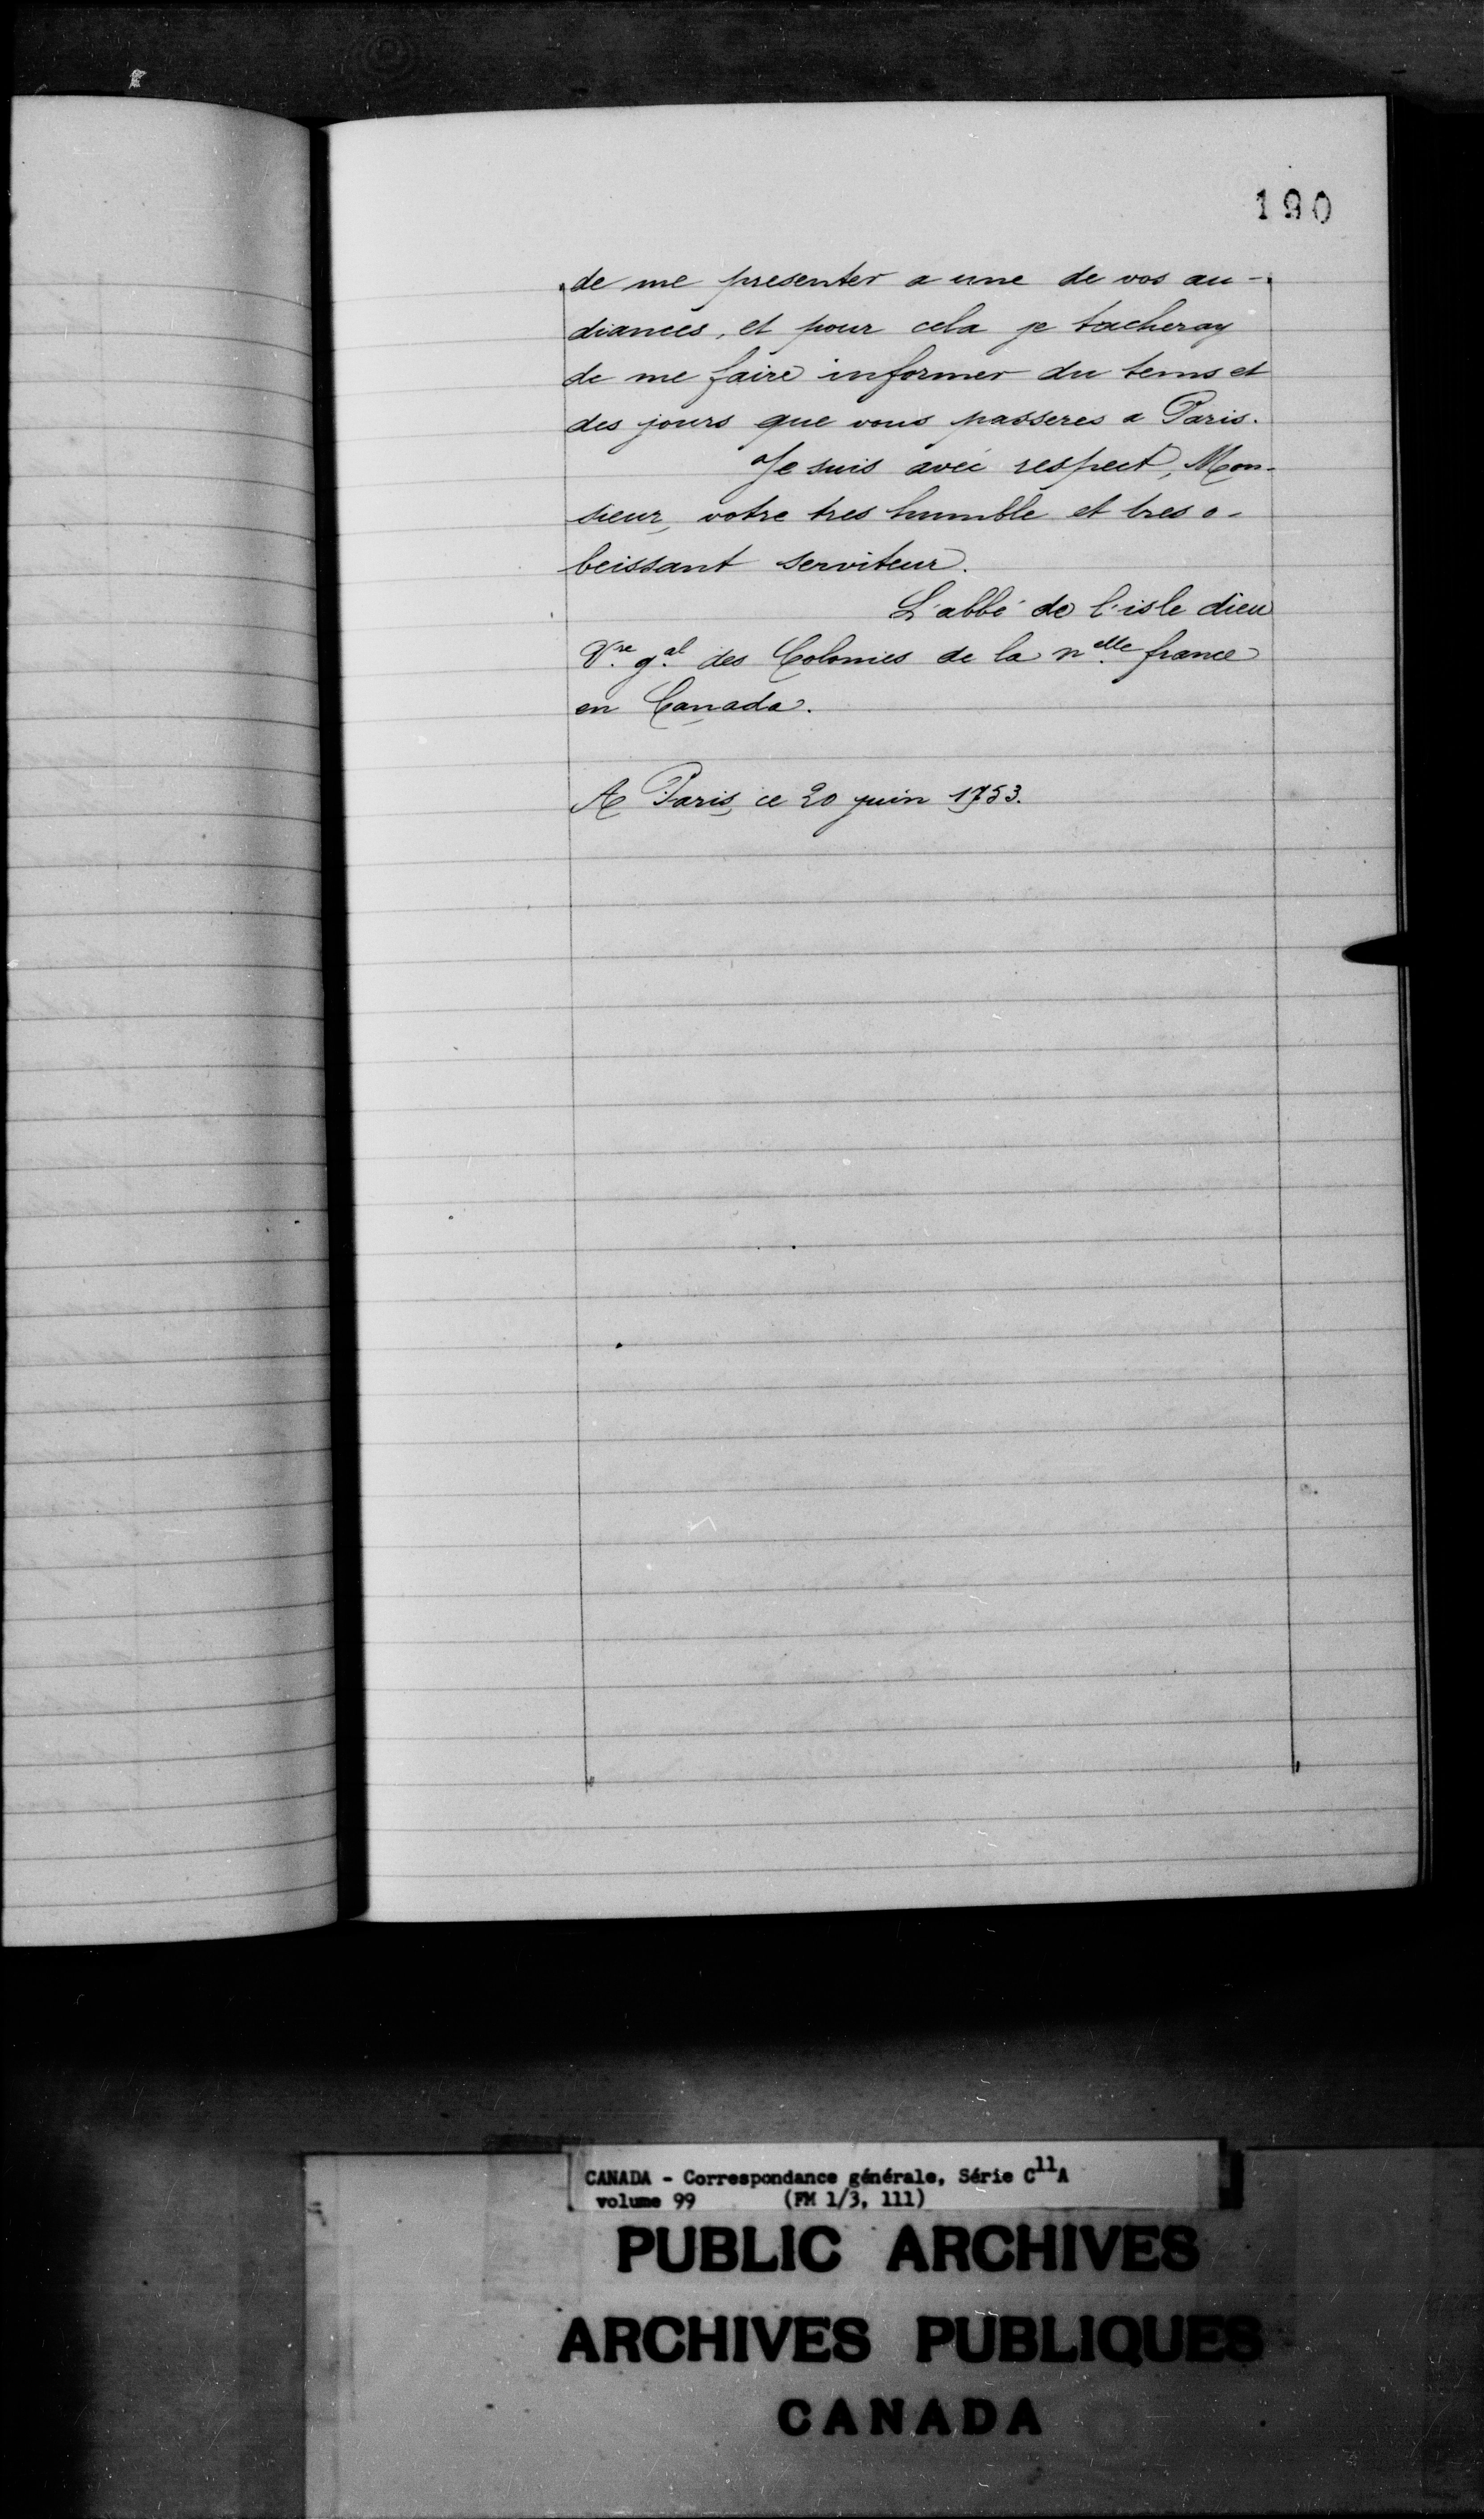 190
de me presenter a une de vos au-
diances, et pour cela je tacheray
de me faire informer du tems et
des jours que vous passeres a Paris.
Je suis avec respect, Mon-
sieur, votre tres humble et tres o-
beissant serviteur.
L'abbé de l'isle dieu
V.re g.al des Colonies de la n.elle france
en Canada.
A Paris, ce 20 juin 1753.
CANADA - Correspondance générale, Série C11A
volume 99 (FM 1/3, 111)
PUBLIC ARCHIVES
ARCHIVES PUBLIQUES
CANADA